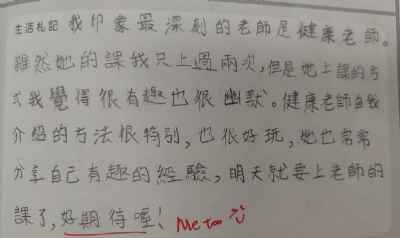 生活札記 我印象最深刻的老師是健康老師。
雖然她的課我只上過兩次，但是她上課的方
式我覺得很有趣也很幽默。健康老師自我
介紹的方法很特別，也很好玩，她也常常
分享自己有趣的經驗，明天就要上老師的
課了，好期待喔！ Me too